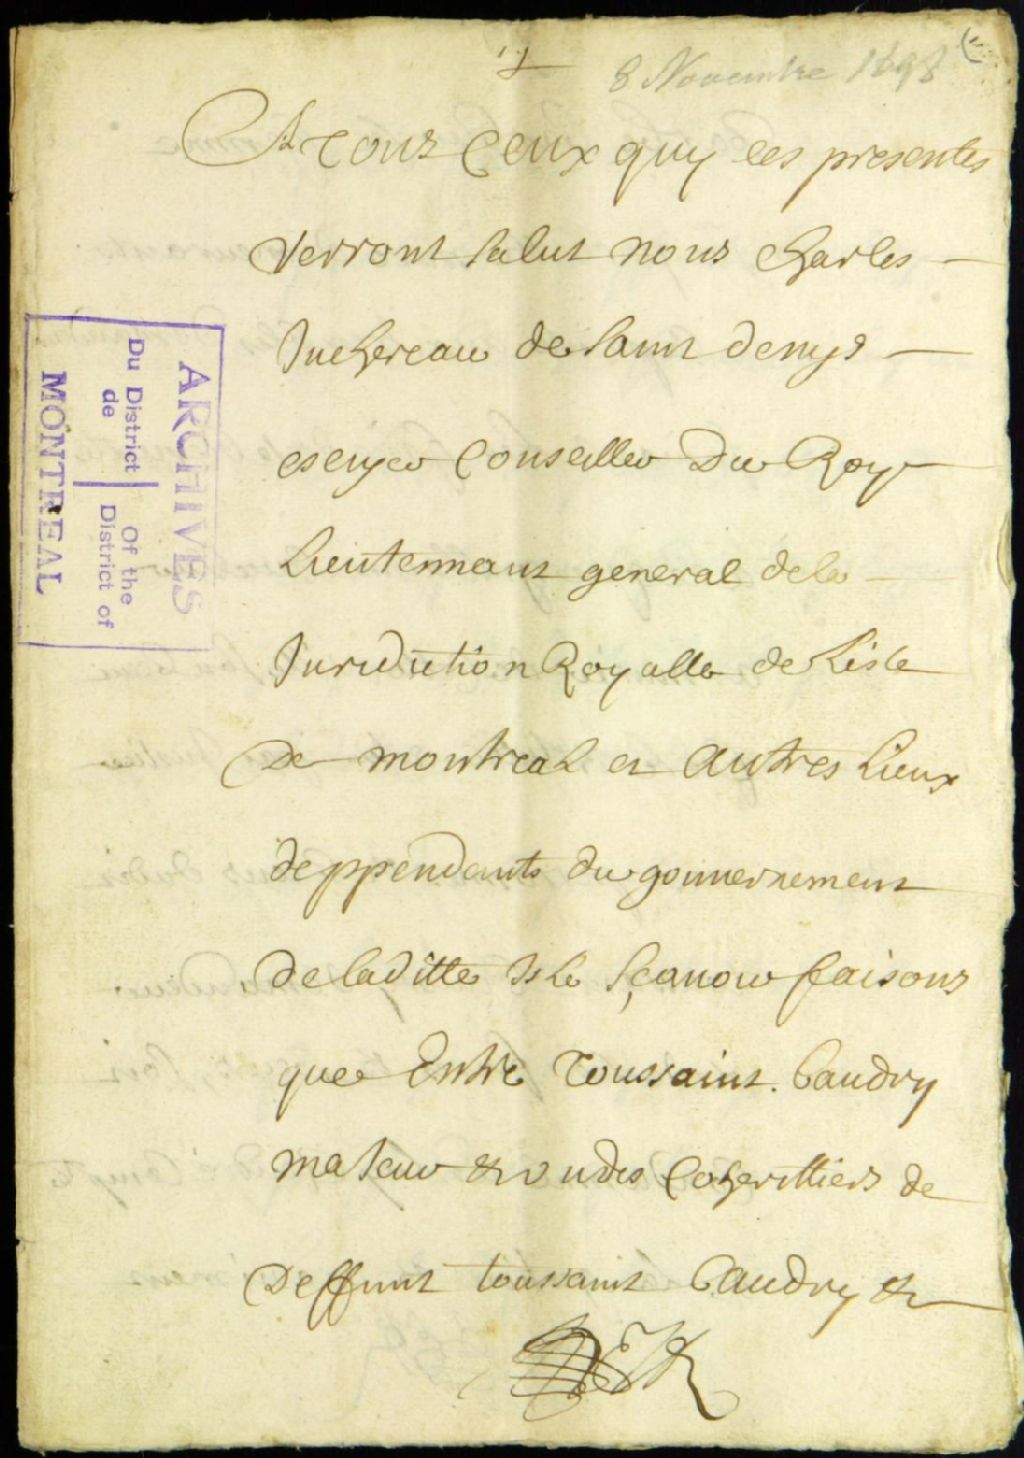 8 Novembre 1698
A Tous Ceux quy ces presentes
Verront salut nous Charles
Juchereau de saint denys
escuyer Conseiller Du Roy
Lieutennant general de la
Juridiction Royalle de L'isle
De montreal et autres Lieux
deppendants du gouvernement
de laditte Isle sçavoir faisons
que Entre Toussaint Baudry
maseur & un des Coherittiers de
Deffunt toussaint Baudry &
ARCHIVES
Du District Of the
de District of
MONTREAL